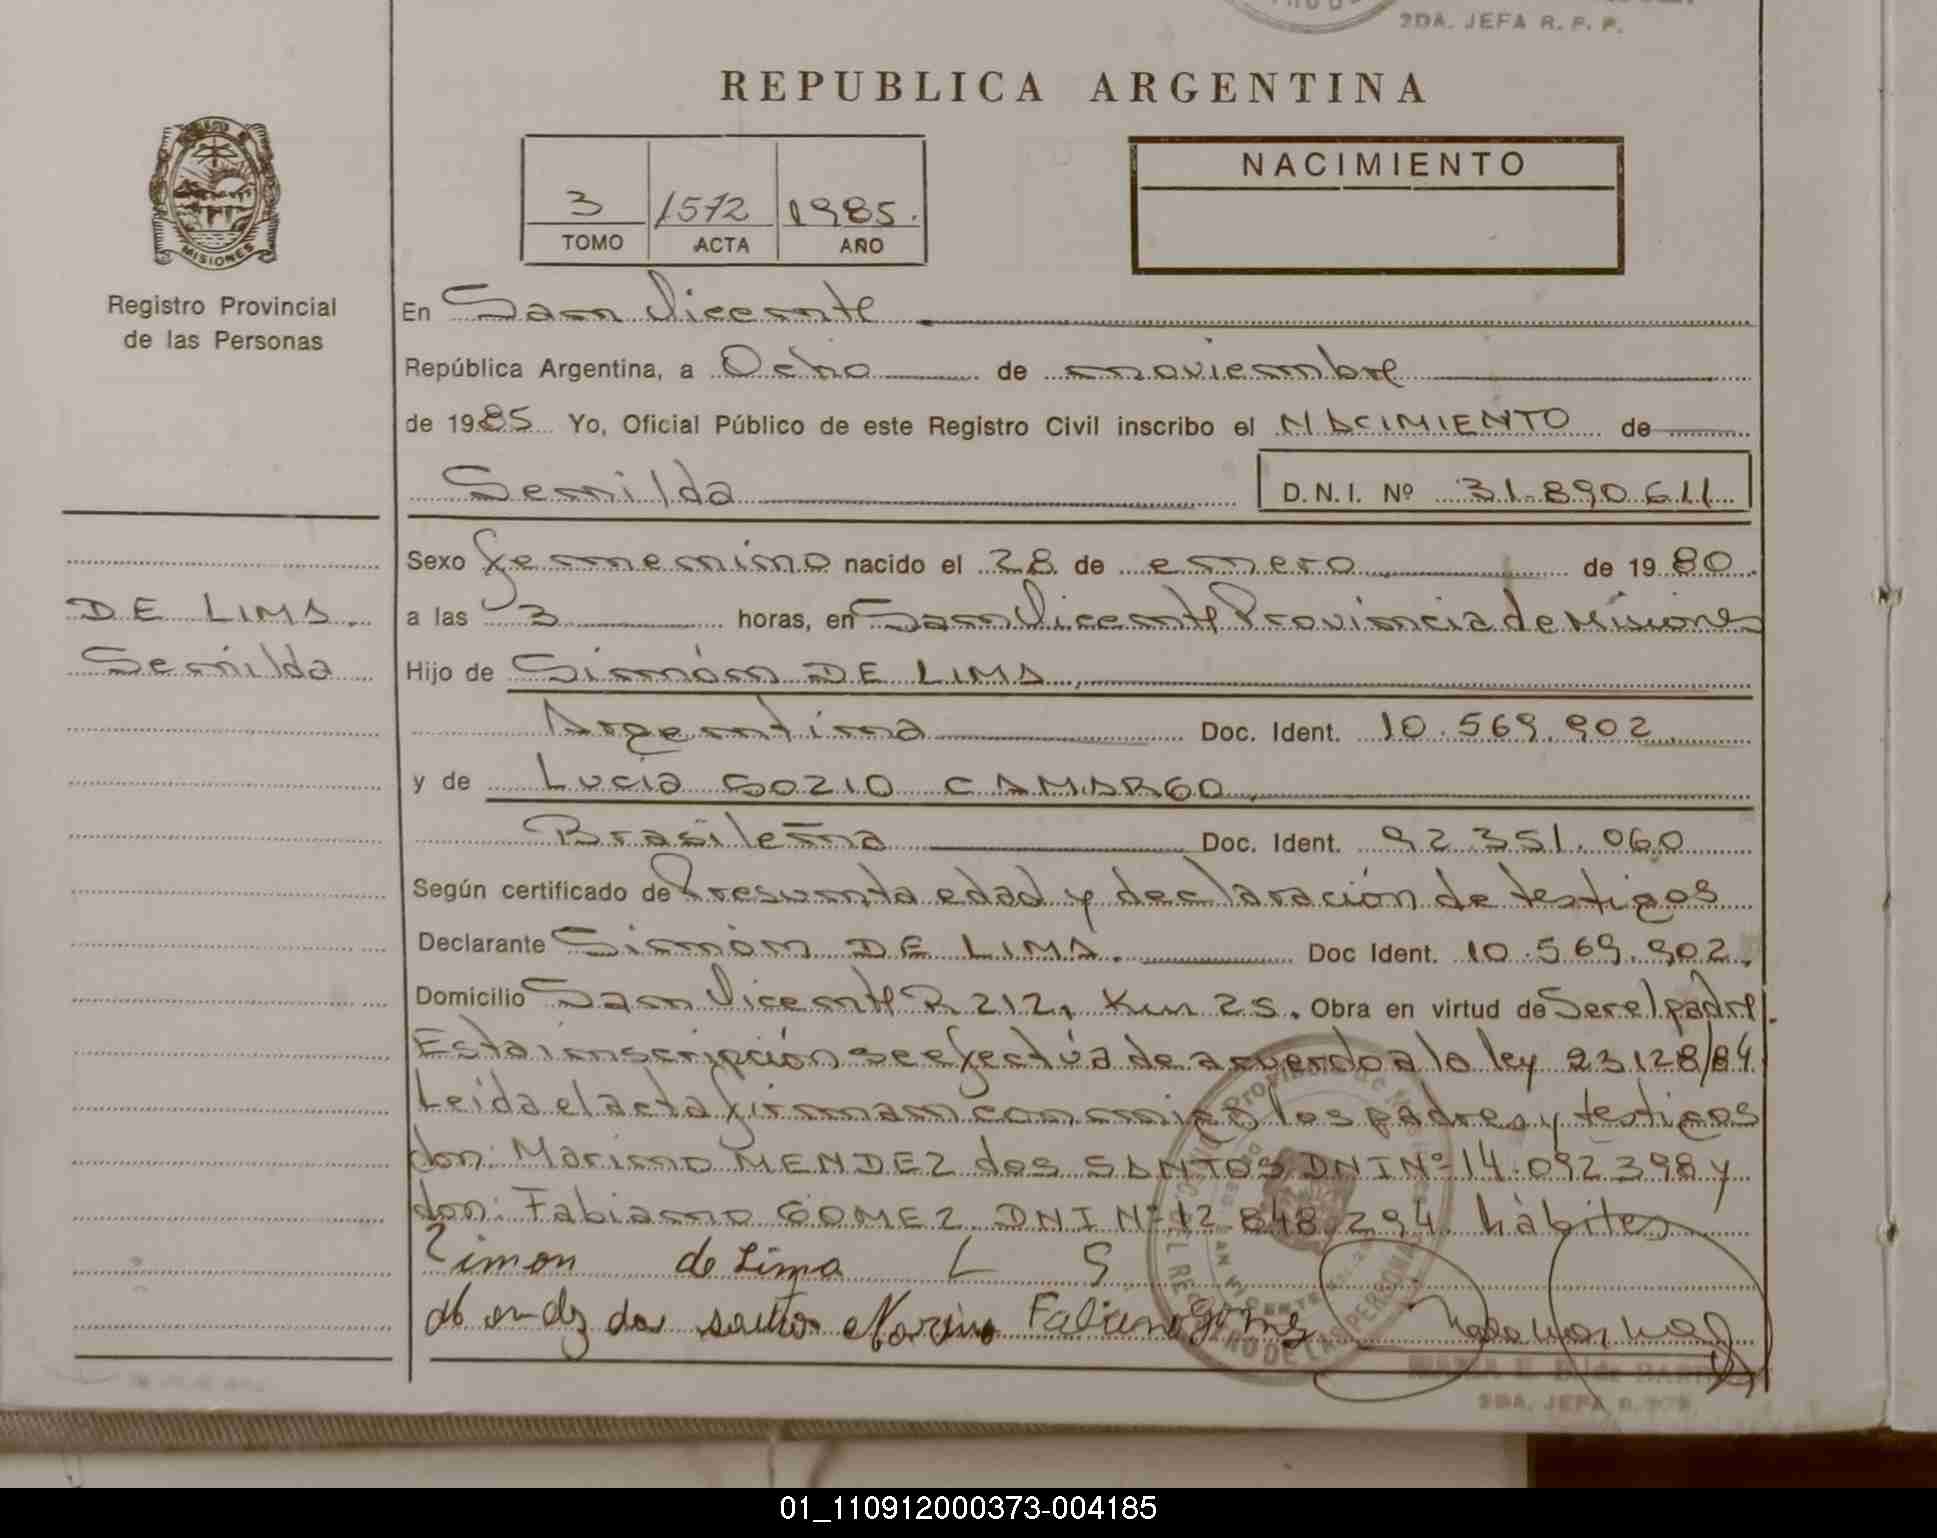 2DA. JEFA R. P. P.
REPUBLICA ARGENTINA
NACIMIENTO
3 1572 1985.
TOMO ACTA AÑO
MISIONES
Registro Provincial
de las Personas
En San Vicente
República Argentina, a Ocho de noviembre
de 1985 Yo, Oficial Público de este Registro Civil inscribo el NACIMIENTO de
Senilda D.N.I. Nº 31.890.611
Sexo femenino nacido el 28 de enero de 1980
DE LIMA.
Senilda
a las 3 horas, en San Vicente Provincia de Misiones
Hijo de Simón DE LIMA,
Argentina Doc. Ident. 10.569.902
y de Lucia GOZIO CAMARGO,
Brasileña Doc. Ident. 92.351.060
Según certificado de Presunta edad y declaración de testigos
Declarante Simón DE LIMA. Doc Ident. 10.569.902.
Domicilio San Vicente R 212, Km 25. Obra en virtud de Ser el padre.
Esta inscripción se efectúa de acuerdo a la ley 23128/84
Leida el acta firman conmigo los padres y testigos
don: Marino MENDEZ dos SANTOS DNI Nº 14.092.398 y
don: Fabiano GOMEZ DNI Nº 12.848.294. hàbiles
Simon de Lima L S
dos santos Marino Fabiano Gomez
2DA. JEFA R.P.P.
01_110912000373-004185